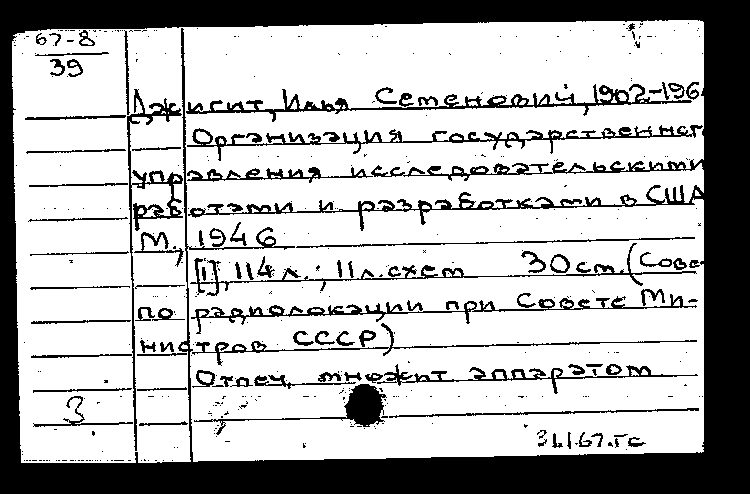 67-8
39
Джигит, Илья Семенович, 1902-196
Организация государственног
управления исследовательскими
работами и разработками в США
М., 1946
[1], 114 л.; 11 л. схем 30 см. (Сове
по радиолокации при Совете Ми-
нистров СССР)
Отпеч. множит аппаратом
3